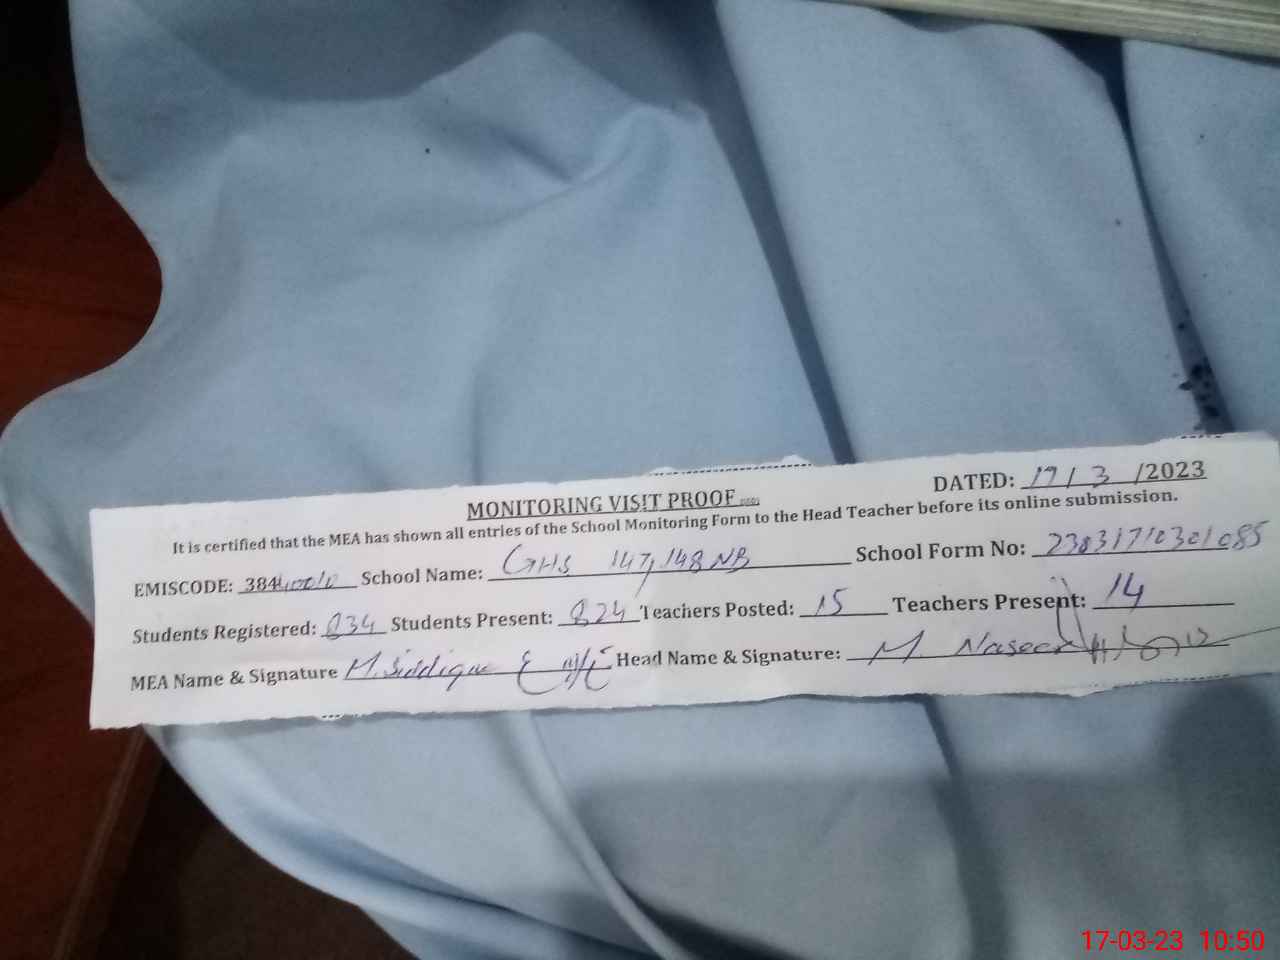 MONITORING VISIT PROOF
DATED: 17/3/2023
It is certified that the MEA has shown all entries of the School Monitoring Form to the Head Teacher before its online submission.
EMISCODE: School Name: GHS 147,148 NB School Form No: 23831710301085
Students Registered: 834 Students Present: 824 Teachers Posted: 15 Teachers Present: 14
MEA Name & Signature M. Siddique Head Name & Signature: M. Naseer
17-03-23 10:50